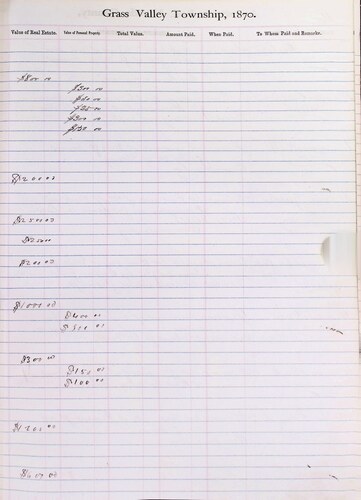 Grass Valley Township, 1870.
Value of Real Estate. Value of Personal Property. Total Value. Amount Paid. When Paid. To Whom Paid and Remarks.
$800 00
$300 00
$300 00
$130 00
$1200 00
$2500 00
$2500
$200 00
$1000 00
$400 00
$300 00
$150 00
$100 00
$1200 00